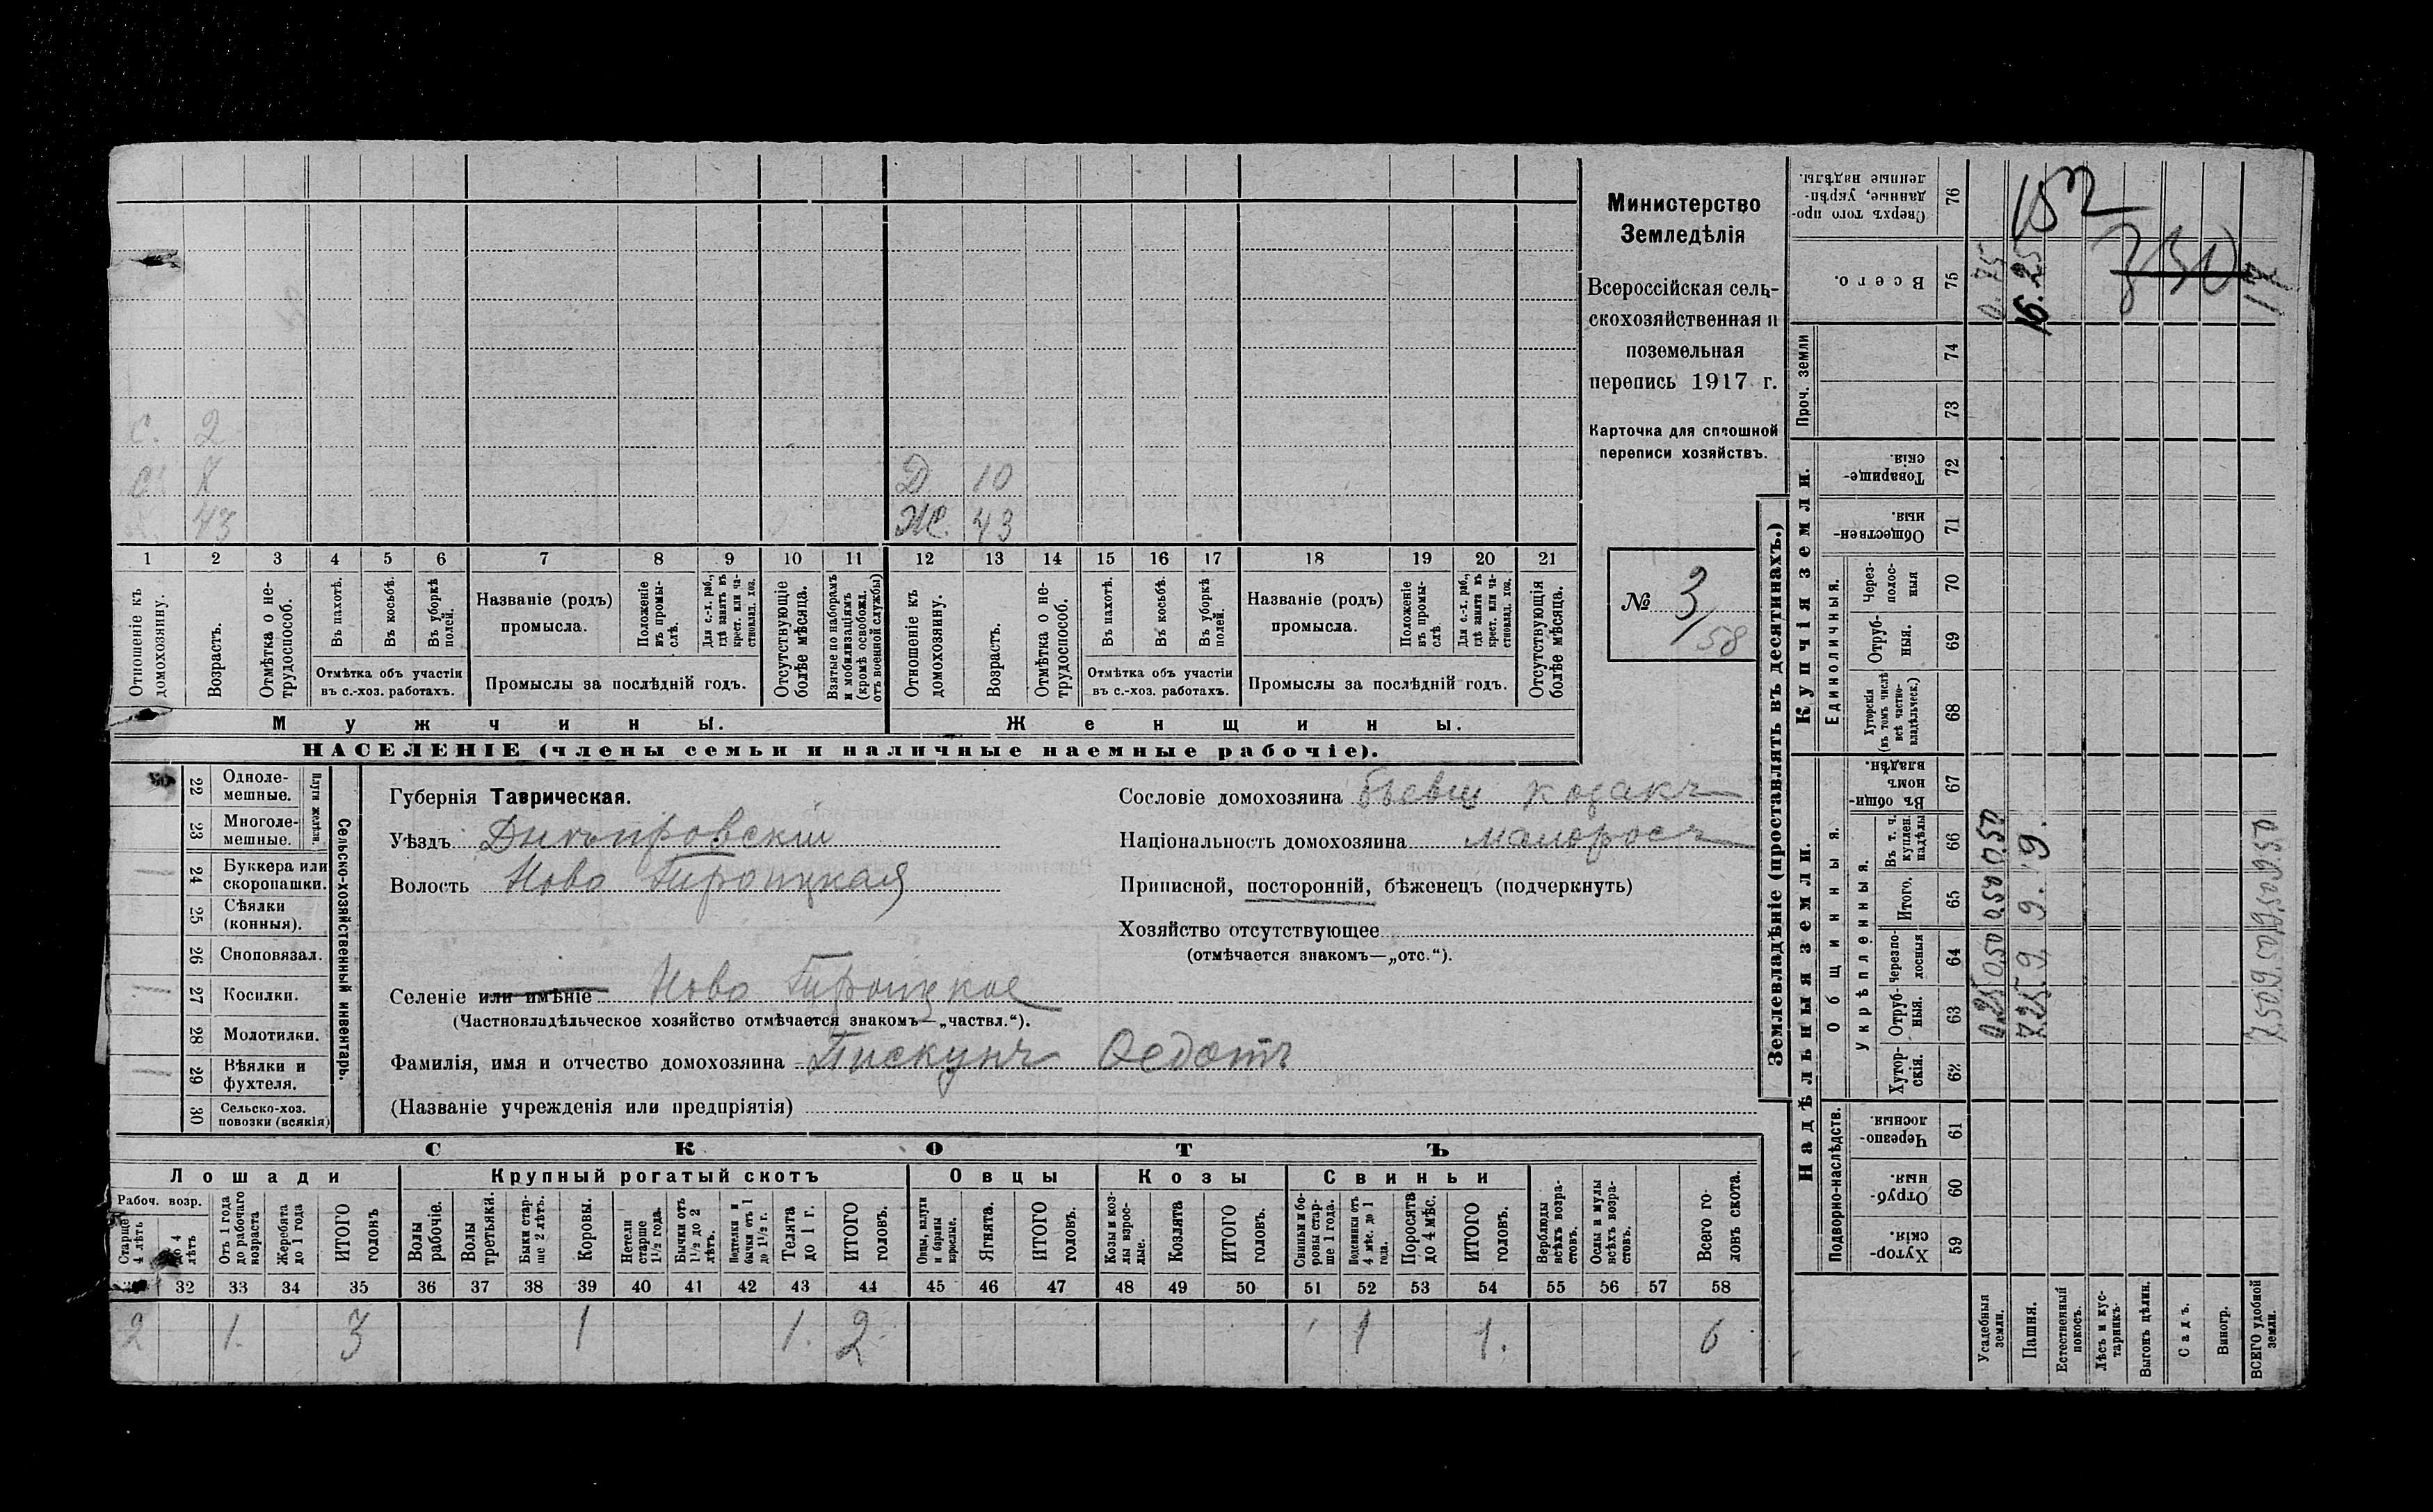 Министерство
Земледѣлія
Всероссійская сель-
скохозяйственная и
поземельная
перепись 1917 г.
Карточка для сплошной
переписи хозяйствъ.
№ 3/58
С. 2
С. 8
43
Д. 10
Ж. 43
1 2 3 4 5 6 7 8 9 10 11 12 13 14 15 16 17 18 19 20 21
Отношеніе къ домохозяину.
Возрастъ.
Отмѣтка о не-трудоспособ.
Въ пахотѣ.
Въ косьбѣ.
Въ уборкѣ полей.
Отмѣтка объ участіи въ с.-хоз. работахъ.
Названіе (родъ) промысла.
Положеніе въ промы-слѣ.
Для с.-х. раб., гдѣ занятъ въ крест. или ча-стновлад. хоз.
Промыслы за послѣдній годъ.
Отсутствующіе болѣе мѣсяца.
Взятые по наборамъ и мобилизаціямъ (кромѣ освобожд. отъ военной службы)
Отношеніе къ домохозяину.
Возрастъ.
Отмѣтка о не-трудоспособ.
Въ пахотѣ.
Въ косьбѣ.
Въ уборкѣ полей.
Отмѣтка объ участіи въ с.-хоз. работахъ.
Названіе (родъ) промысла.
Положеніе въ промы-слѣ
Для с.-х. раб., гдѣ занята въ крест. или ча-стновлад. хоз.
Промыслы за послѣдній годъ.
Отсутствующія болѣе мѣсяца.
Мужчины.
Женщины.
НАСЕЛЕНІЕ (члены семьи и наличные наемные рабочіе).
22 Одноле-мешные.
23 Многоле-мешные.
Плуги желѣзн.
24 Буккера или скоропашки. 1
25 Сѣялки (конныя).
26 Сноповязал.
27 Косилки. 1
28 Молотилки.
29 Вѣялки и фухтеля. 1
30 Сельско-хоз. повозки (всякія)
Сельско-хозяйственный инвентарь.
Губернія Таврическая.
Уѣздъ Днѣпровскій
Волость Ново Троицкая
Селеніе или имѣніе Ново Троицкое
(Частновладѣльческое хозяйство отмѣчается знакомъ—„частвл.“).
Фамилія, имя и отчество домохозяина Пискунъ Федотъ
(Названіе учрежденія или предпріятія)
Сословіе домохозяина бывш козакъ
Національность домохозяина малоросъ
Приписной, посторонній, бѣженецъ (подчеркнуть)
Хозяйство отсутствующее
(отмѣчается знакомъ—„отс.“).
СКОТЪ
Лошади
Крупный рогатый скотъ
Овцы
Козы
Свиньи
Рабоч. возр.
Старше 4 лѣтъ
до 4 лѣтъ
Отъ 1 года до рабочаго возраста
Жеребята до 1 года
ИТОГО головъ
Волы рабочіе.
Волы третьяки.
Быки стар-ше 2 лѣтъ.
Коровы.
Нетели старше 1½ года.
Бычки отъ 1½ до 2 лѣтъ.
Подтелки и бычки отъ 1 до 1½ г.
Телята до 1 г.
ИТОГО головъ.
Овцы, валухи и бараны взрослые.
Ягнята.
ИТОГО головъ.
Козы и коз-лы взрос-лые.
Козлята
ИТОГО головъ.
Свиньи и бо-ровы стар-ше 1 года.
Подсвинки отъ 4 мѣс. до 1 года.
Поросята до 4 мѣс.
ИТОГО головъ.
Верблюды всѣхъ возра-стовъ.
Ослы и мулы всѣхъ возра-стовъ.
Всего го-ловъ скота.
32 33 34 35 36 37 38 39 40 41 42 43 44 45 46 47 48 49 50 51 52 53 54 55 56 57 58
2 1. 3 1 1. 2 1 1. 6
Землевладѣніе (проставлять въ десятинахъ.)
Надѣльныя земли.
Купчія земли.
Проч. земли
Подворно-наслѣдств.
Общинныя.
Укрѣпленныя.
Единоличныя.
Хутор-скія. 59
Отруб-ныя. 60
Черезпо-лосныя. 61
Хутор-скія. 62
Отруб-ныя. 63
Черезпо-лосныя 64
Итого. 65
Въ т. ч. куплен. надѣлы 66
Въ общи-номъ владѣн. 67
Хуторскія (въ томъ числѣ всѣ частно-владѣльческ.) 68
Отруб-ныя. 69
Через-полос-ныя 70
Обществен-ныя. 71
Товарище-скія. 72
73
74
Всего. 75
Сверхъ того про-данные, укрѣп-ленные надѣлы. 76
Усадебныя земли. 0.25 0.50 0.50 0.50 0.75
Пашня. 7.25 9. 9. 9. 16.25
Естественный покосъ.
Лѣсъ и кус-тарникъ.
Выгонъ цѣлин.
Садъ.
Виногр.
ВСЕГО удобной земли.
152
350
17